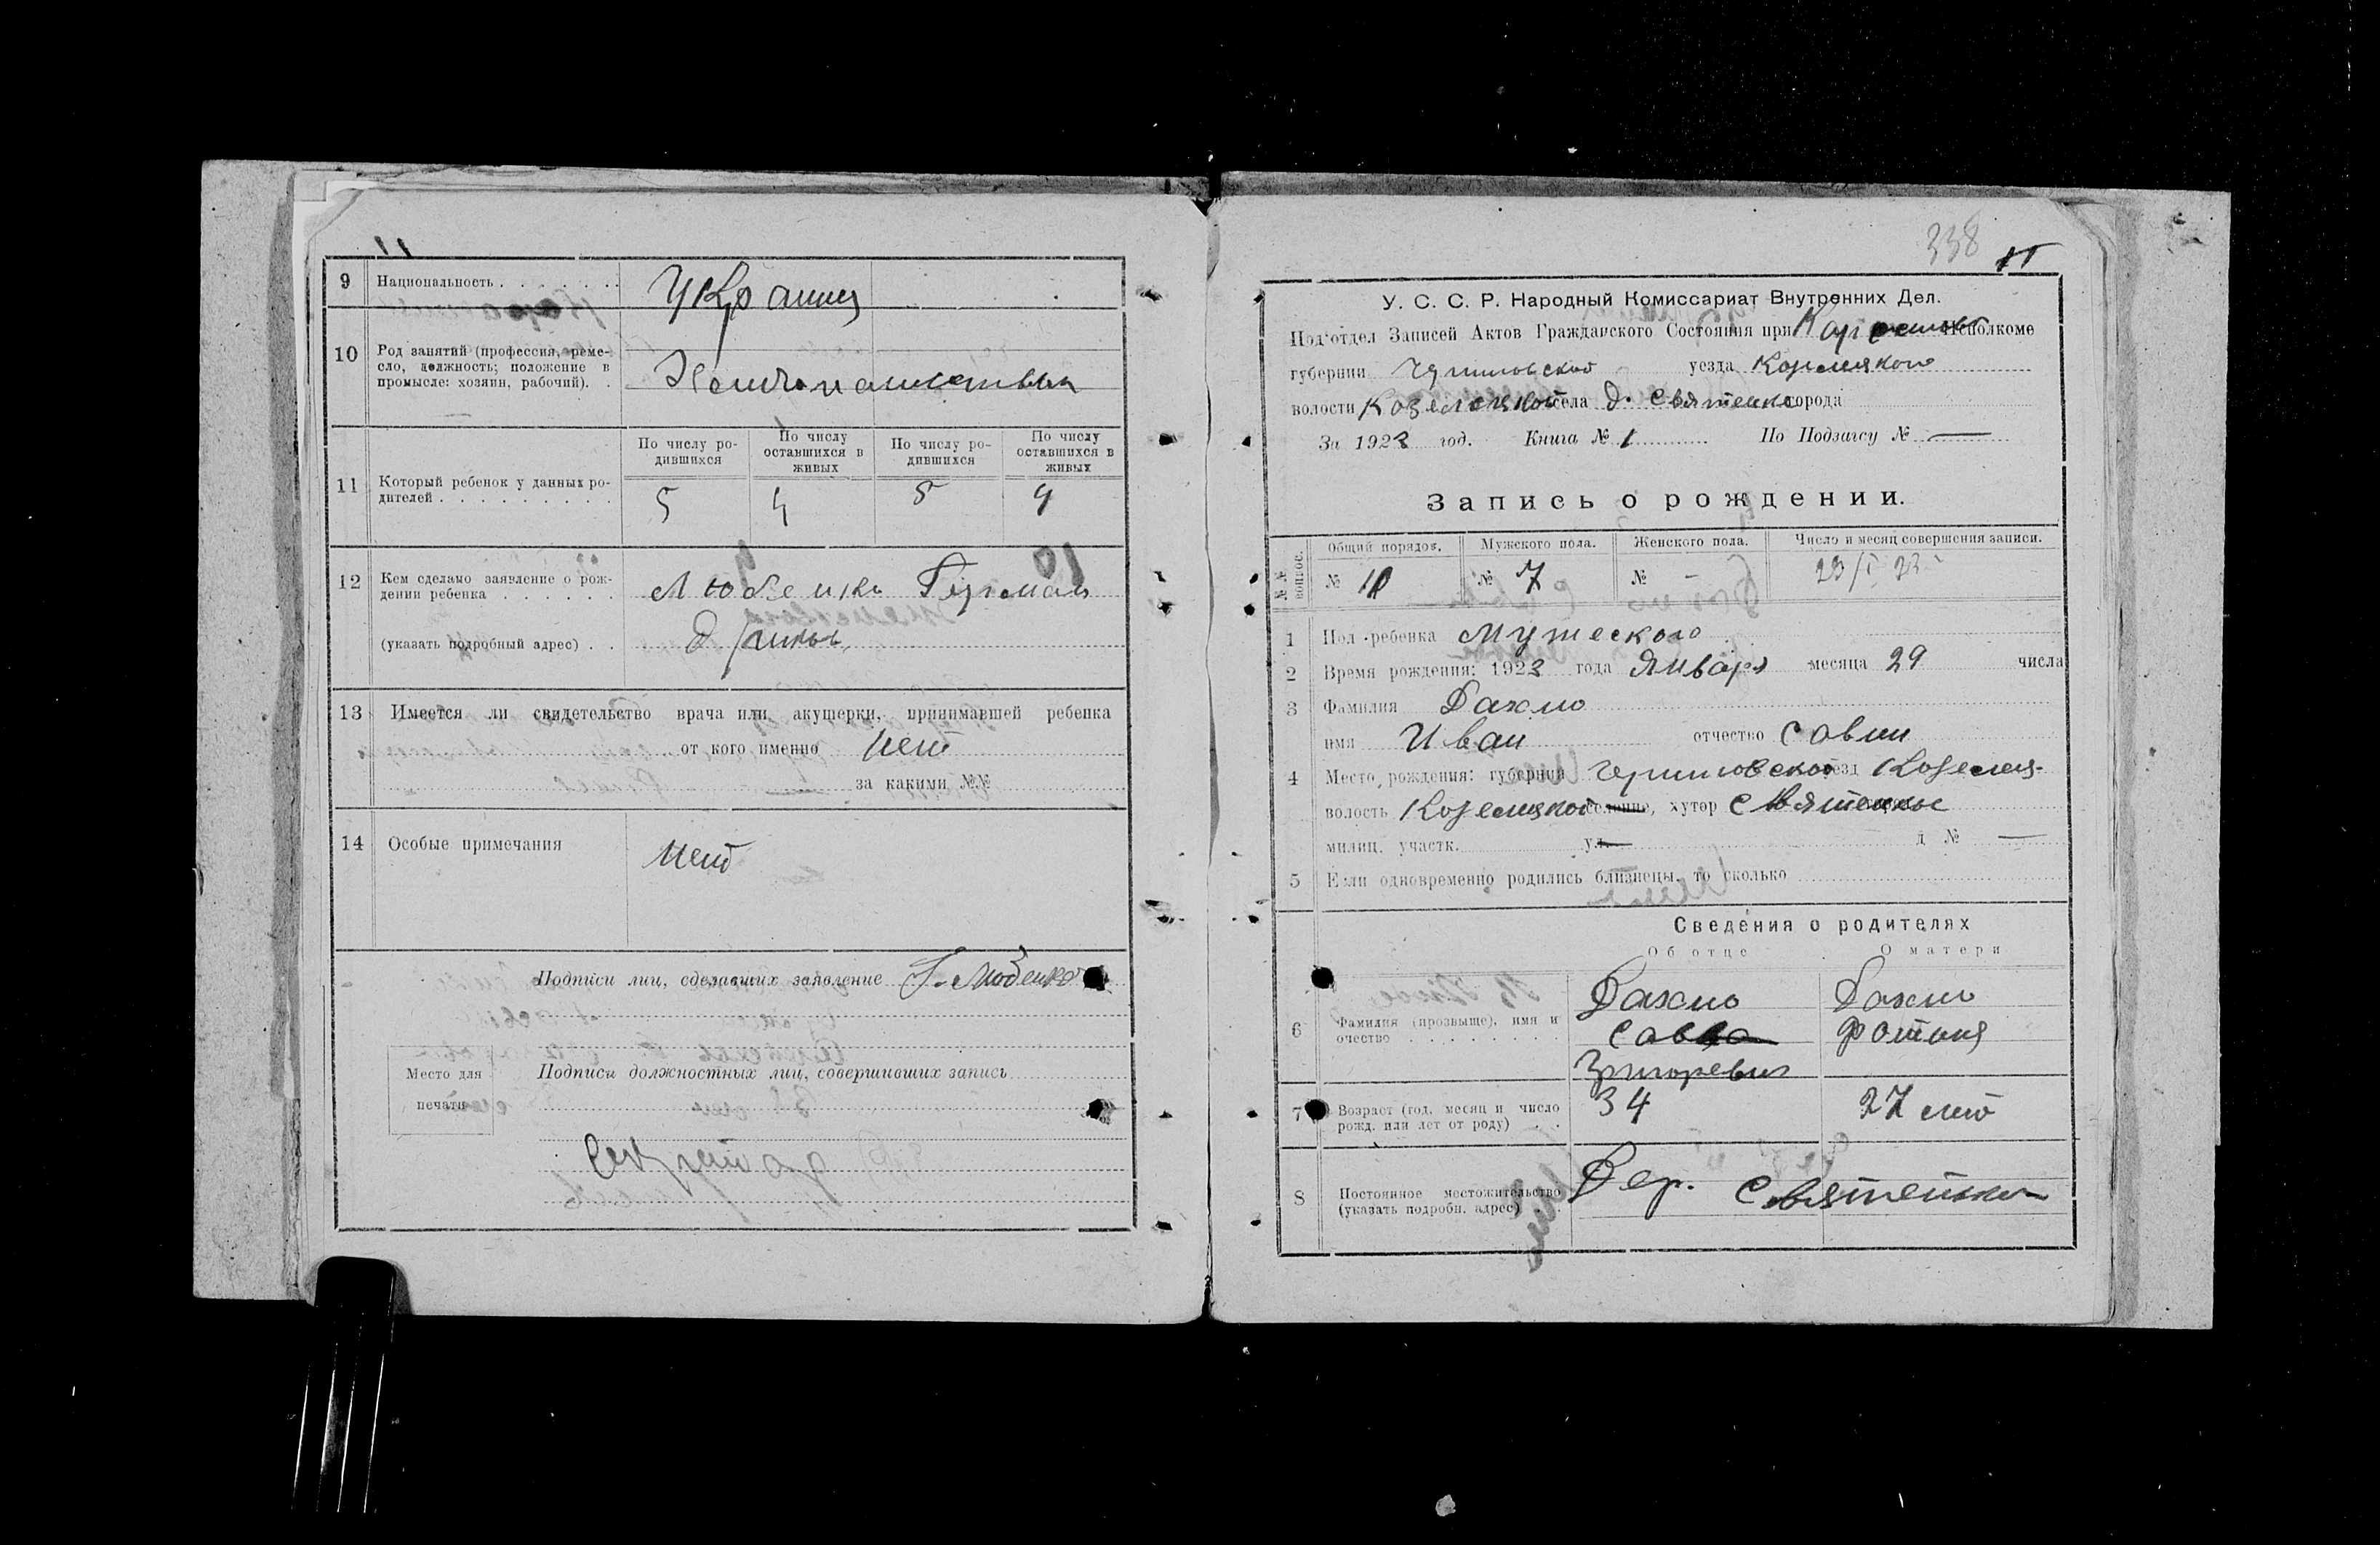 9 Национальность
10 Род занятий (профессия, реме-
сло, должность; положение в
промысле: хозяин, рабочий).
11 Который ребенок у данных ро-
дителей
По числу ро-
дившихся
По числу
оставшихся в
живых
По числу ро-
дившихся
По числу
оставшихся в
живых
5 4 5 4
12 Кем сделано заявление о рож-
дении ребенка Любенко
(указать подробный адрес)
13 Имеется ли свидетельство врача или акушерки, принимавшей ребенка
от кого именно нет
за какими №№
14 Особые примечания нет
Подписи лиц, сделавших заявление Г. Любенко
Место для
печати
Подписи должностных лиц, совершивших запись
338
11
У. С. С. Р. Народный Комиссариат Внутренних Дел.
Подотдел Записей Актов Гражданского Состояния при Исполкоме
губернии уезда
волости Козелецкой села д. Святенко города
За 1923 год. Книга № 1 По Подзагсу № —
Запись о рождении.
№№ вопрос.
Общий порядов. Мужского пола. Женского пола. Число и месяц совершения записи.
№ № 7 № -
1 Пол ребенка мужеского
2 Время рождения: 1923 года Января месяца 29 числа
3 Фамилия Дахно
имя Иван отчество Савин
4 Место рождения: губерния Черниговской уезд Козелец-
волость Козелецкой селение, хутор
милиц. участк. ул. д № —
5 Если одновременно родились близнецы, то сколько
Сведения о родителях
Об отце О матери
6 Фамилия (прозвыще), имя и
очество
Дахно
Савва
Григоревич
Дахно
Фотиния
7 Возраст (год, месяц и число
рожд. или лет от роду)
34 27 лет
8 Постоянное местожительство
(указать подробн. адрес)
Дер.